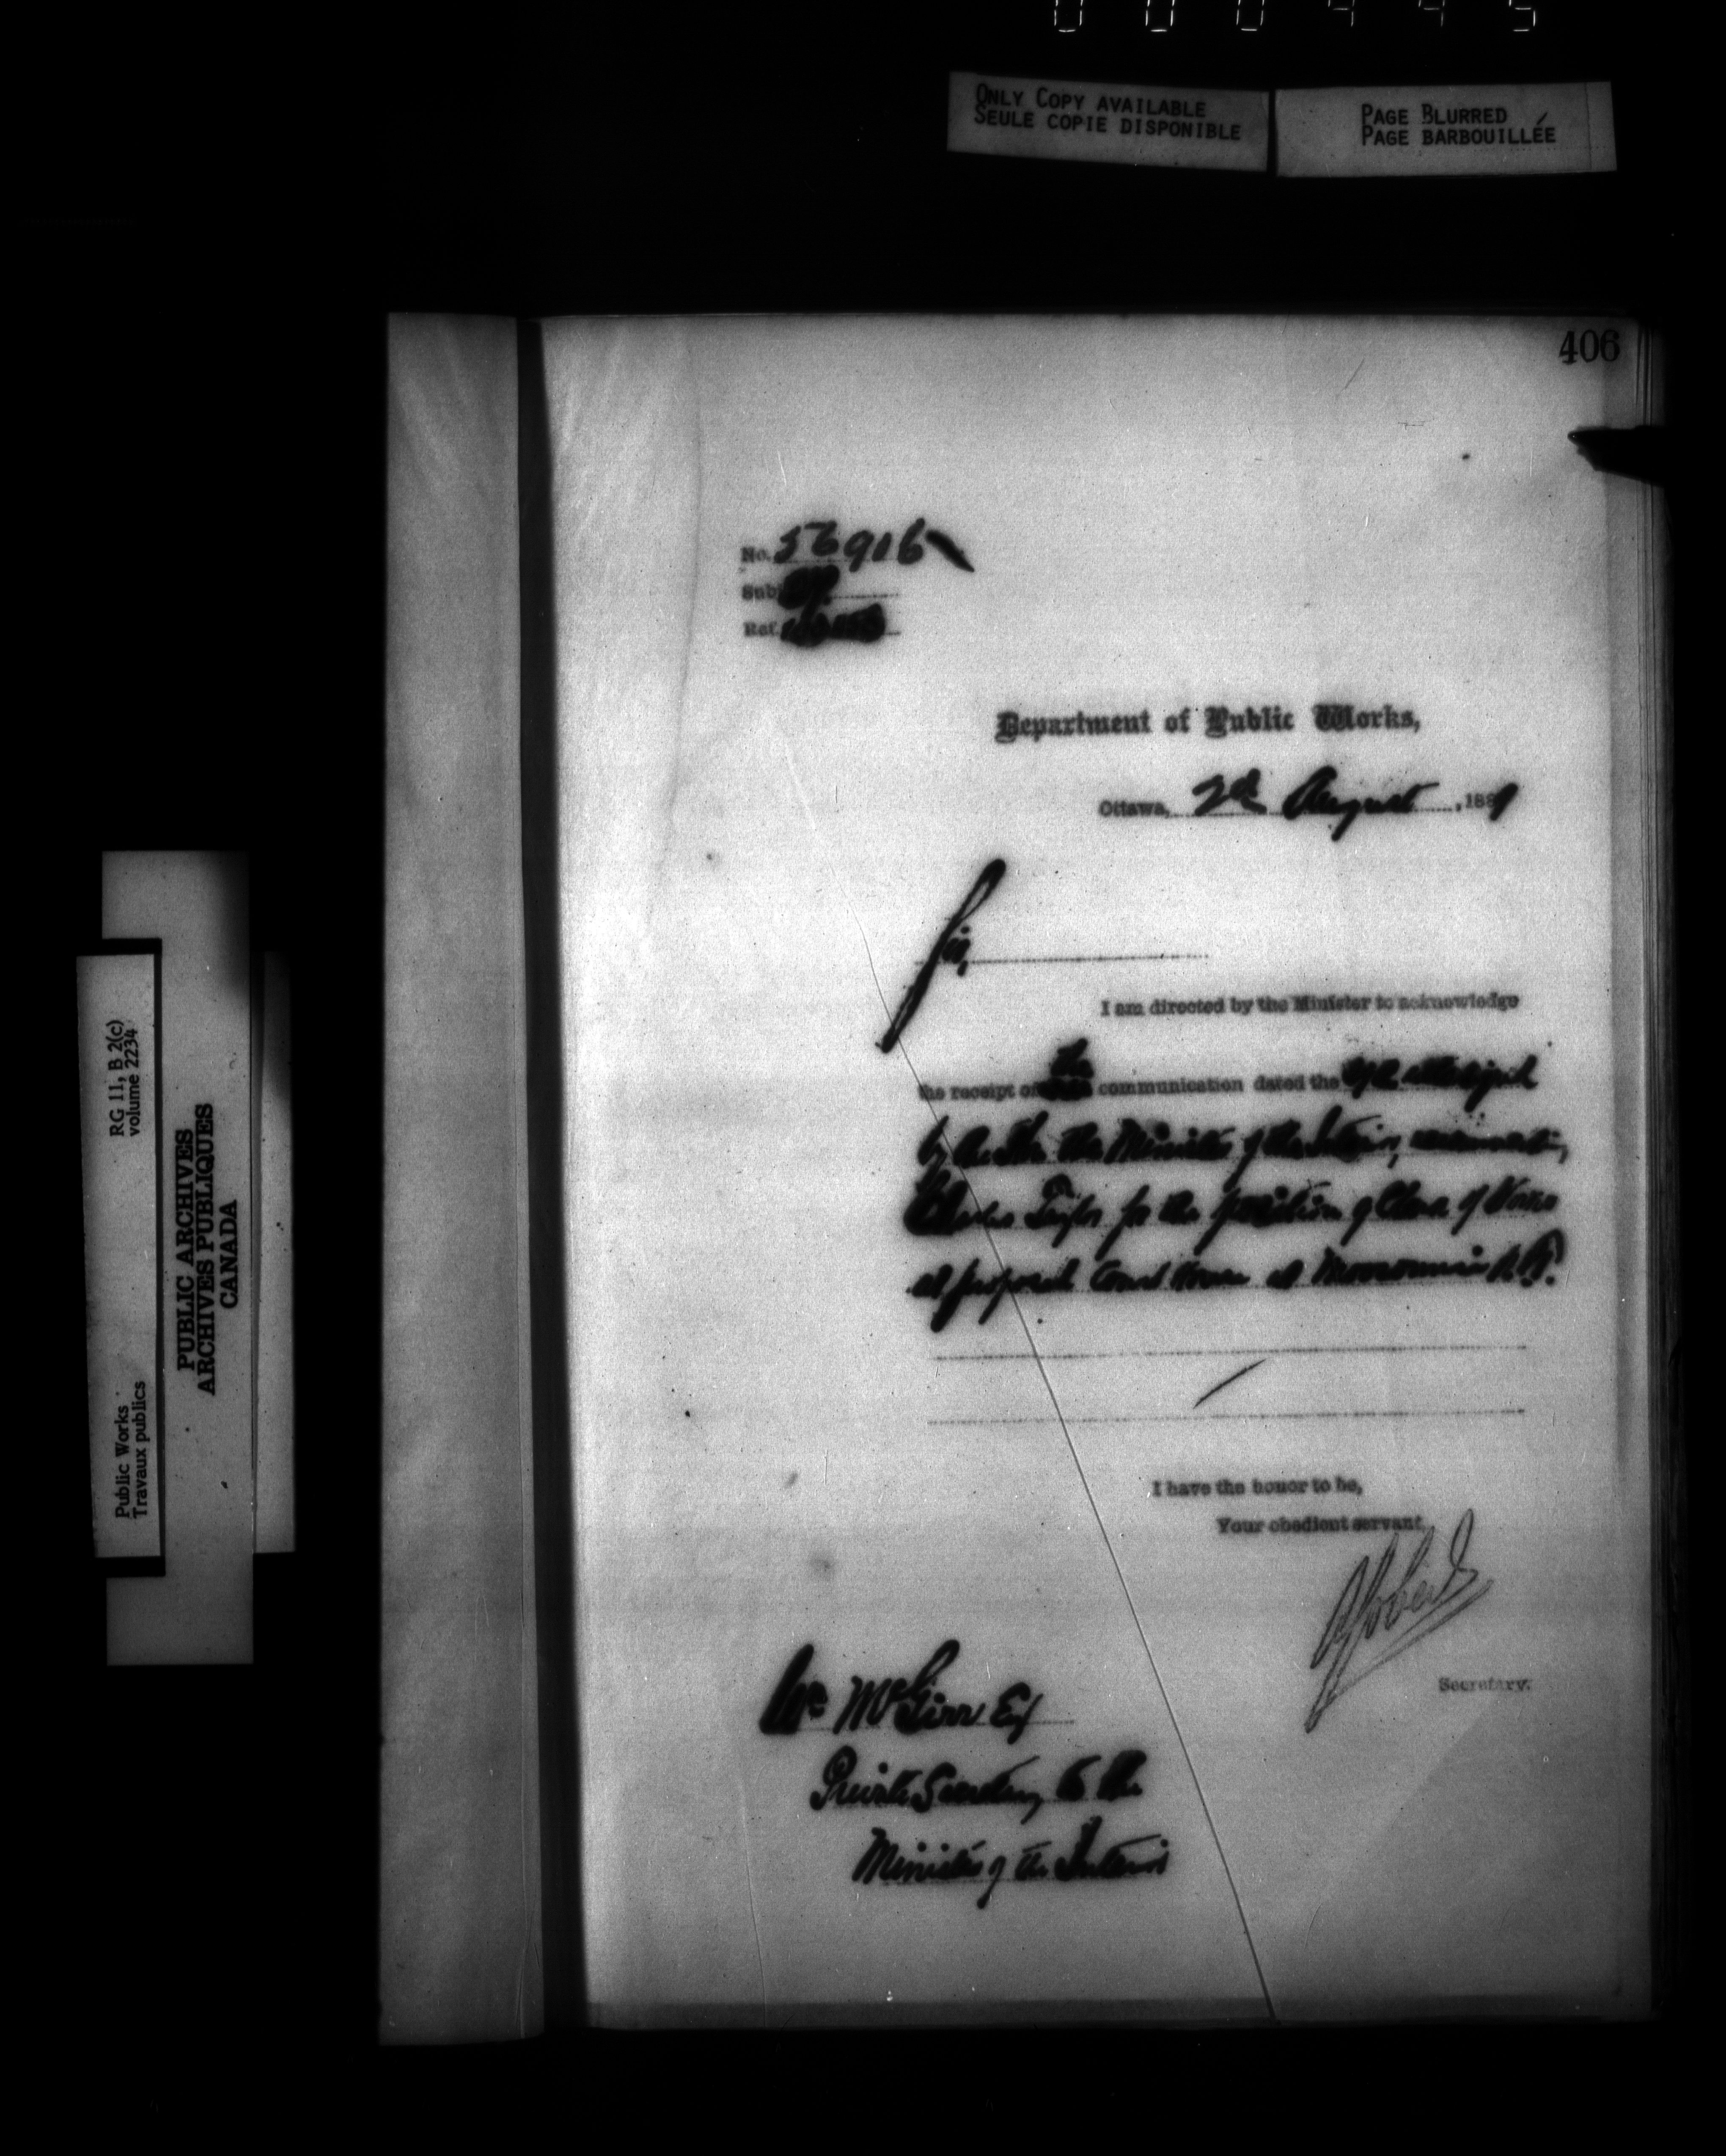 000445
ONLY COPY AVAILABLE
SEULE COPIE DISPONIBLE
PAGE BLURRED
PAGE BARBOUILLÉE
406
No. 56906
Sub
Ref.
Department of Public Works,
Ottawa, 2d August, 1889
Sir,
I am directed by the Minister to acknowledge
the receipt of the communication dated the
by the Minister of the Interior,
Charles for the position of Clerk of Works
at proposed Court House at Moosomin
I have the honor to be,
Your obedient servant,
Secretary.
Wm McGirr Esq
Private Secretary to the
Minister of the Interior
RG 11, B 2(c)
volume 2234
Public Works
Travaux publics
PUBLIC ARCHIVES
ARCHIVES PUBLIQUES
CANADA